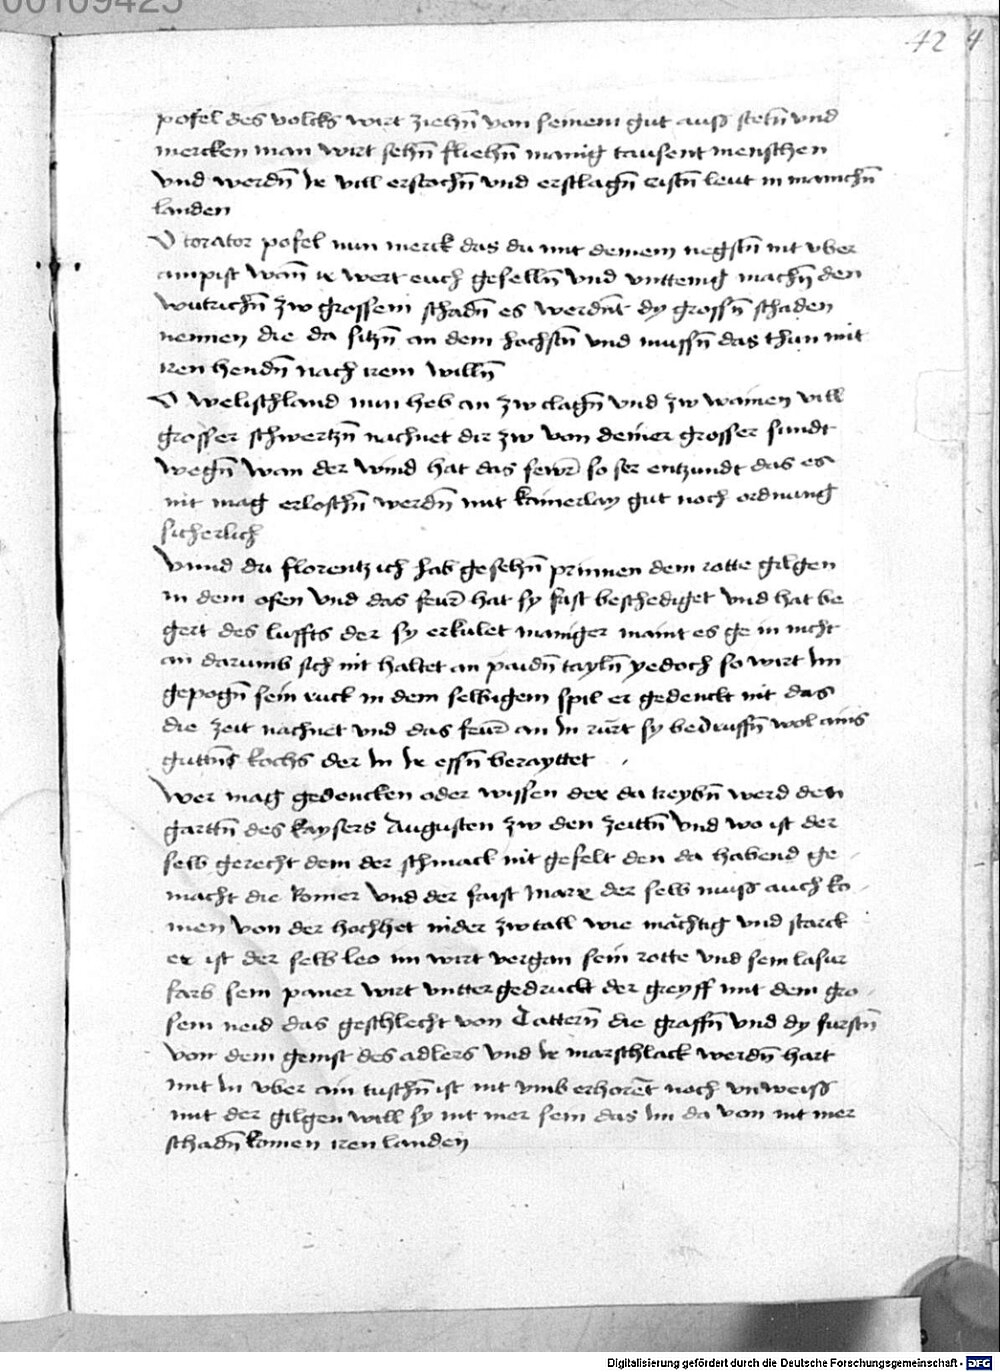 00109425
42 4
pofel des volcks wirt ziehn̄ von seinem gut auß stetn̄ vnd
mercken man wirt sehn̄ fliehn̄ manig tausent menschen
vnd werdn̄ ir vill erstochn̄ vnd erschlagn̄ cristn̄ leut in manichn̄
landen
O pofel nun merck das du mit deinem negstn̄ nit vber
ainpist wan̄ ir wert euch geselln̄ vnd vnttenig machn̄ den
wutrichn̄ zw grossem schadn̄ es werdnt dy grossn̄ schaden
nennen die da sitzn̄ an dem hochstn̄ vnd mussn̄ das thun mit
iren hendn̄ nach irem willn̄
O welischland nun heb an zw clagn̄ vnd zw wainen vill
grosser schmertzn̄ nachnet dir zw von deiner grosser sundt
wegn̄ wan der wind hat das fewr so ser entzundt das es
nit mag erloschn̄ werdn̄ mit kainerlay gut noch ordnung
sicherlich
Vnnd du florentz ich hab gesehn̄ prinnen dein rotte gilgen
in dem ofen vnd das feur hat sy fast beschediget vnd hat be
gert des luffts der sy erkulet maniger maint es ge in nicht
an darumb sich nit haltet an paidn̄ tayln̄ yedoch so wirt im
gepogn̄ sein ruck in dem selbigem spil er gedenckt nit das
die zeit nachnet vnd das feur an in rurt sy bedruffn̄ wol ains
guttn̄s kochs der in ir essn̄ berayttet
Wer mag gedencken oder wissen der da treybn̄ werd den
gartn̄ des kaysers Augusten zw den zeittn̄ vnd wo ist der
selb gerecht dem der schmack nit gefelt den da habend ge
macht die Romer vnd der faist Marx der selb muß auch ko
men von der hochhet nider zw tall wie mächtig vnd starck
er ist der selb leo im wirt vergan sein rotte vnd sein lasur
farb sein paner wirt vntter gedruckt der greyff mit dem gro
sem neid das geschlecht von Tattern̄ die graffn̄ vnd dy furstn̄
von dem geinst des adlers vnd ir marschlack werdn̄ hart
mit in vber ain tuschn̄ ist nit vmb erhoret noch vnweiß
mit der gilgen will sy nit mer sein das im da von nit mer
schadn̄ komen iren landen
Digitalisierung gefördert durch die Deutsche Forschungsgemeinschaft - DFG